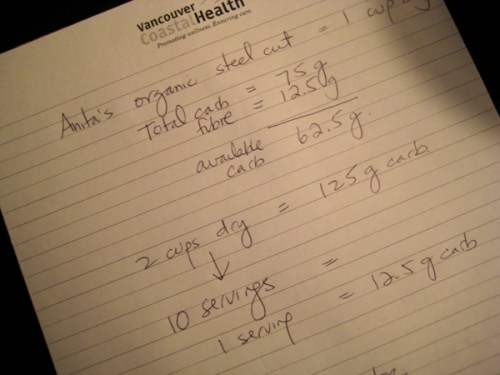 Vancouver
CoastalHealth
Promoting wellness. Ensuring care.
Anita's organic steel cut = 1 cup
Total carb = 75g
fibre = 12.5g
available carb 62.5g.
2 cups dry = 125g carb
↓
10 servings =
1 serving = 12.5g carb